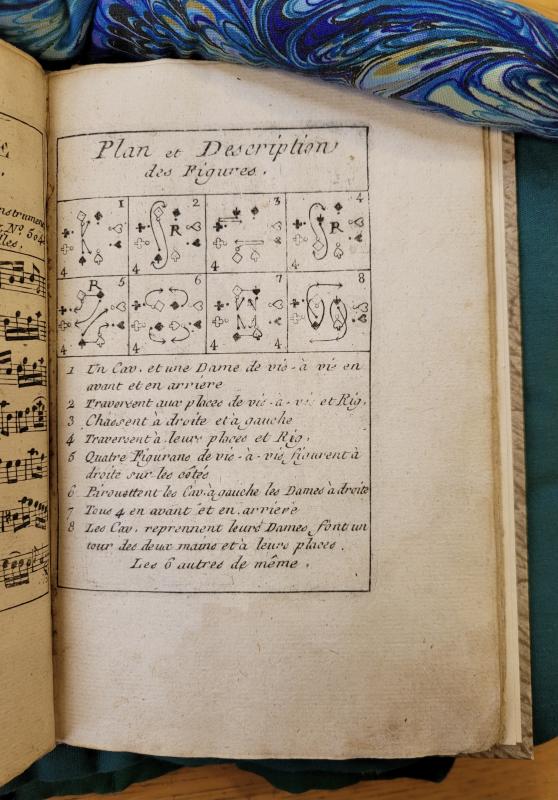 nstrumens
Nº. 504
lles.
Plan et Description
des Figures.
1 2 3 4
R R
4 4 4 4
5 6 7 8
R
4 4 4 4
1 Un Cav. et une Dame de vis-à vis en
avant et en arriere
2 Traversent aux places de vis-à-vis et Rig.
3 Chassent à droite et à gauche
4 Traversent à leurs places et Rig.
5 Quatre Figurans de vis-à-vis figurent à
droite sur les côtés
6 Pirouettent les Cav. à gauche les Dames à droite
7 Tous 4 en avant et en arriere
8 Les Cav. reprennent leurs Dames font un
tour des deux mains et à leurs places.
Les 6 autres de même.